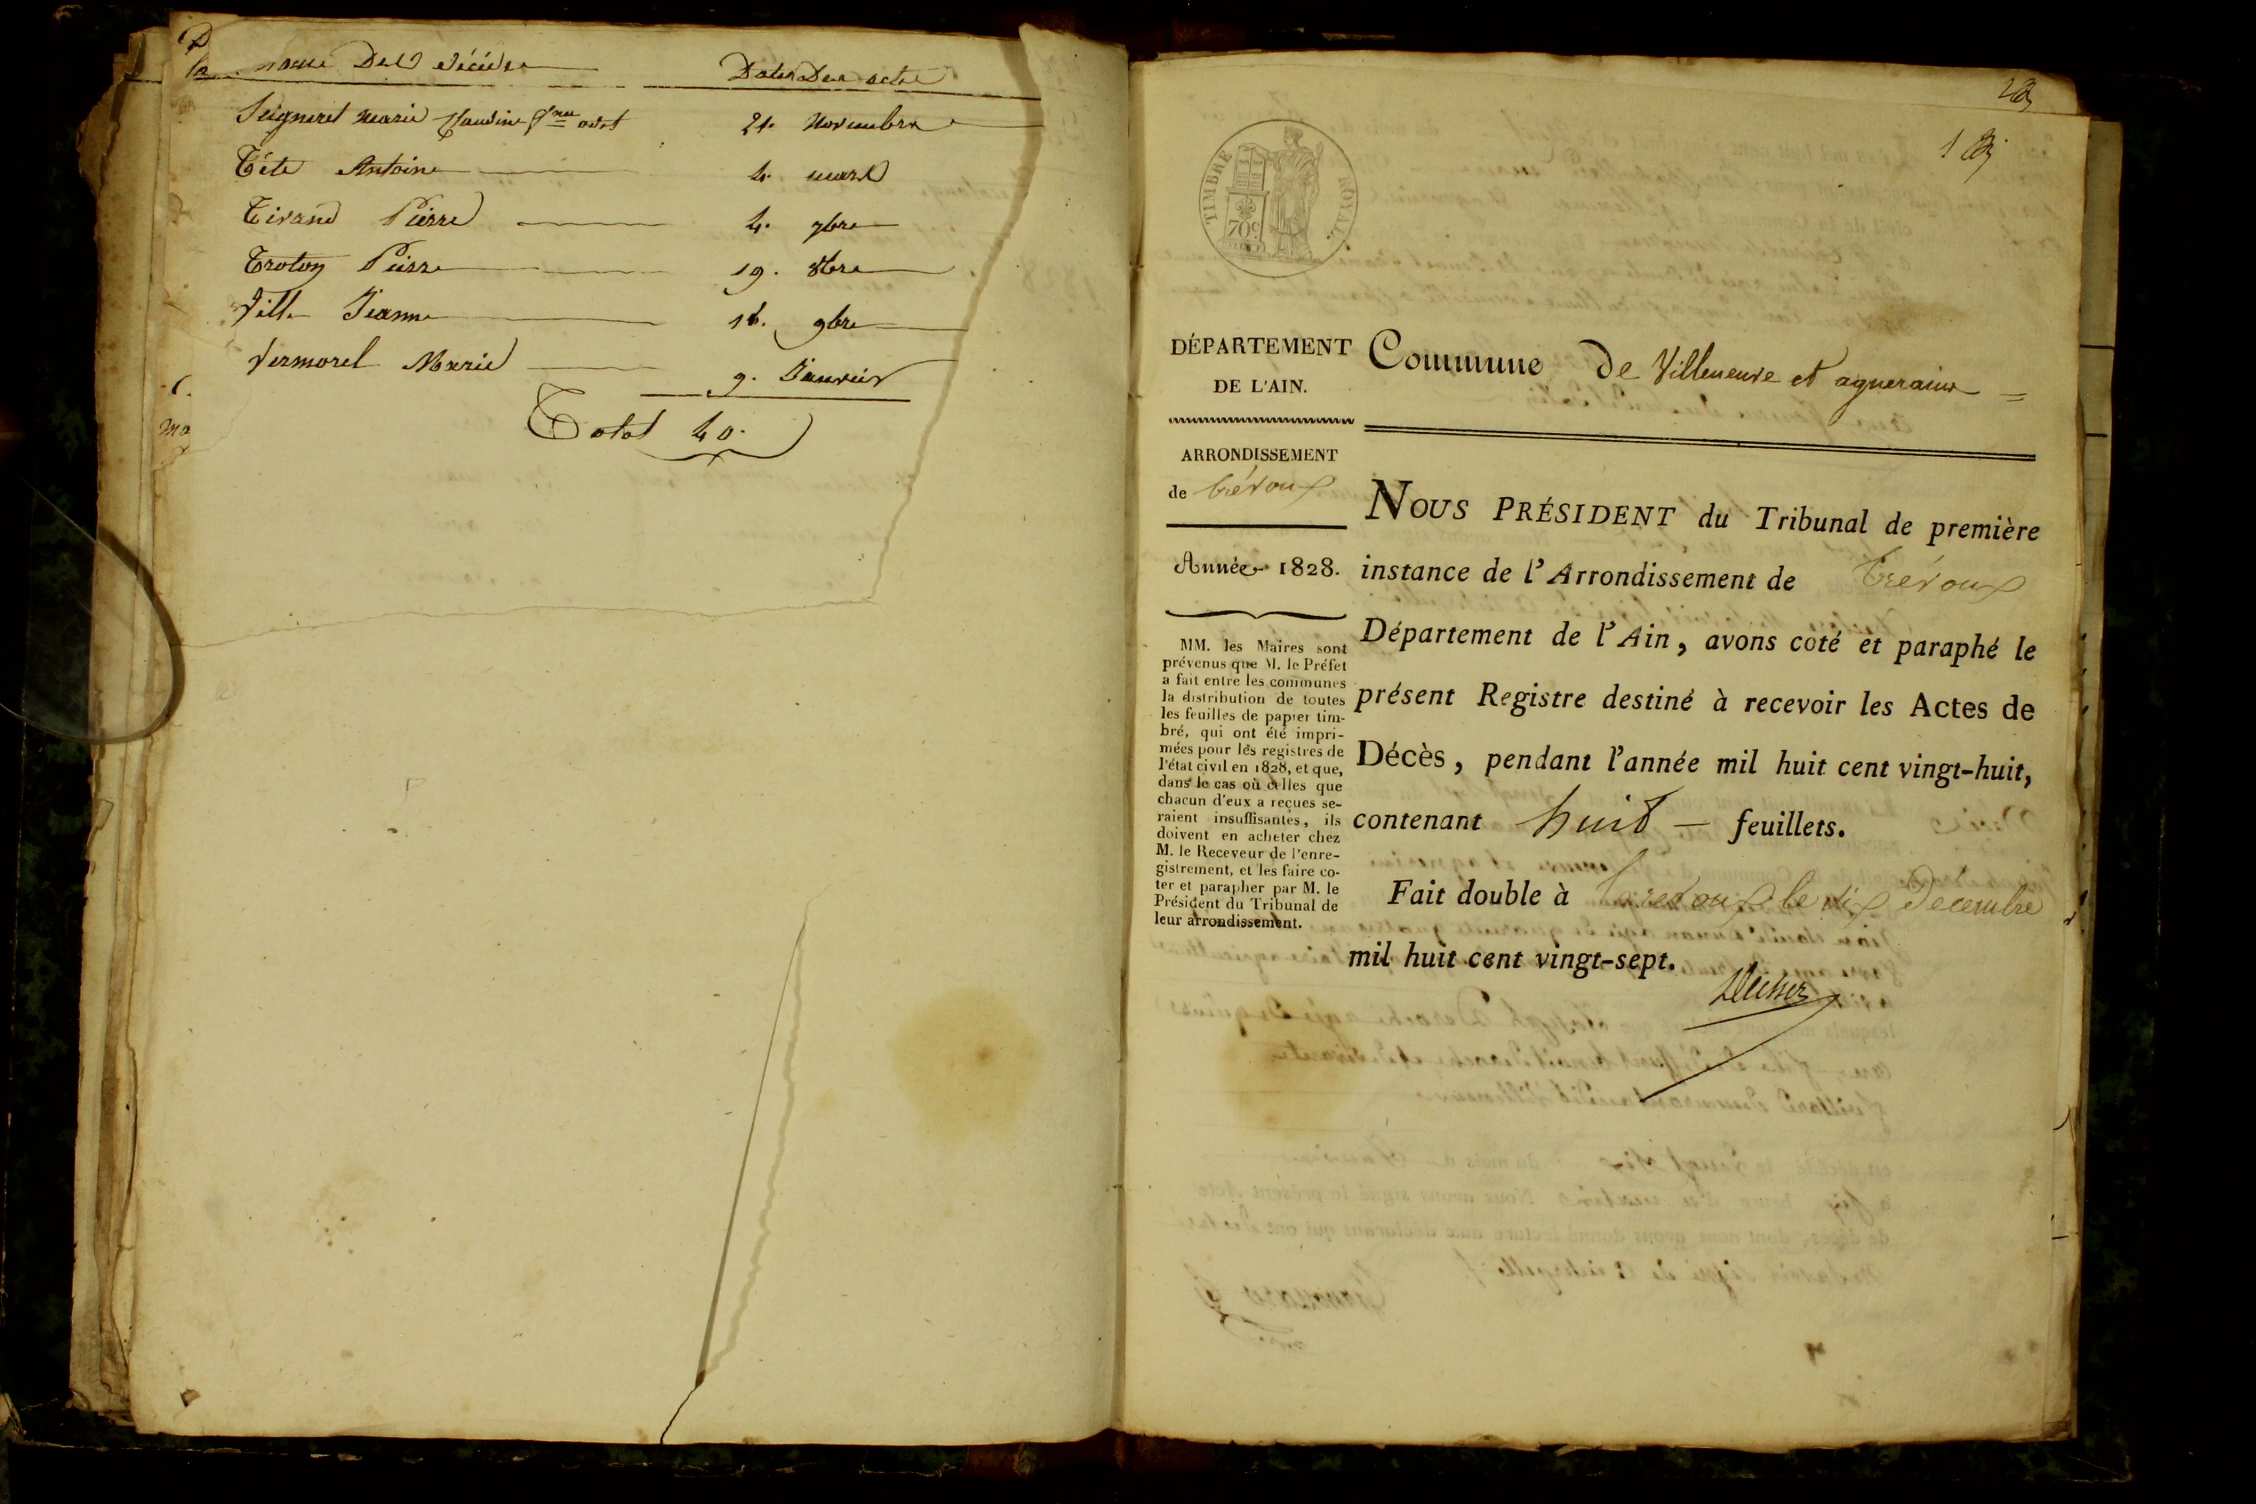 noms Des décédés Dates Des actes
Seigneret marie Claudine fme odet 21. Novembre
Tête Antoine 4. mars
Tirand Pierre 4. 7bre
Troton Pierre 19. 8bre
Ville Jeanne 16. 9bre
Vermorel Marie 9. Janvier
Total 40.
TIMBRE ROYAL
70c
DÉPARTEMENT
DE L'AIN.
ARRONDISSEMENT
de trévoux
Année 1828.
MM. les Maires sont
prévenus que M. le Préfet
a fait entre les communes
la distribution de toutes
les feuilles de papier tim-
bré, qui ont été impri-
mées pour les registres de
l'état civil en 1828, et que,
dans le cas où celles que
chacun d'eux a reçues se-
raient insuffisantes, ils
doivent en acheter chez
M. le Receveur de l'enre-
gistrement, et les faire co-
ter et parapher par M. le
Président du Tribunal de
leur arrondissement.
Commune de Villeneuve et agnerains
NOUS PRÉSIDENT du Tribunal de première
instance de l'Arrondissement de Trévoux
Département de l'Ain, avons coté et paraphé le
présent Registre destiné à recevoir les Actes de
Décès, pendant l'année mil huit cent vingt-huit,
contenant huit — feuillets.
Fait double à trevoux le dix Decembre
mil huit cent vingt-sept.